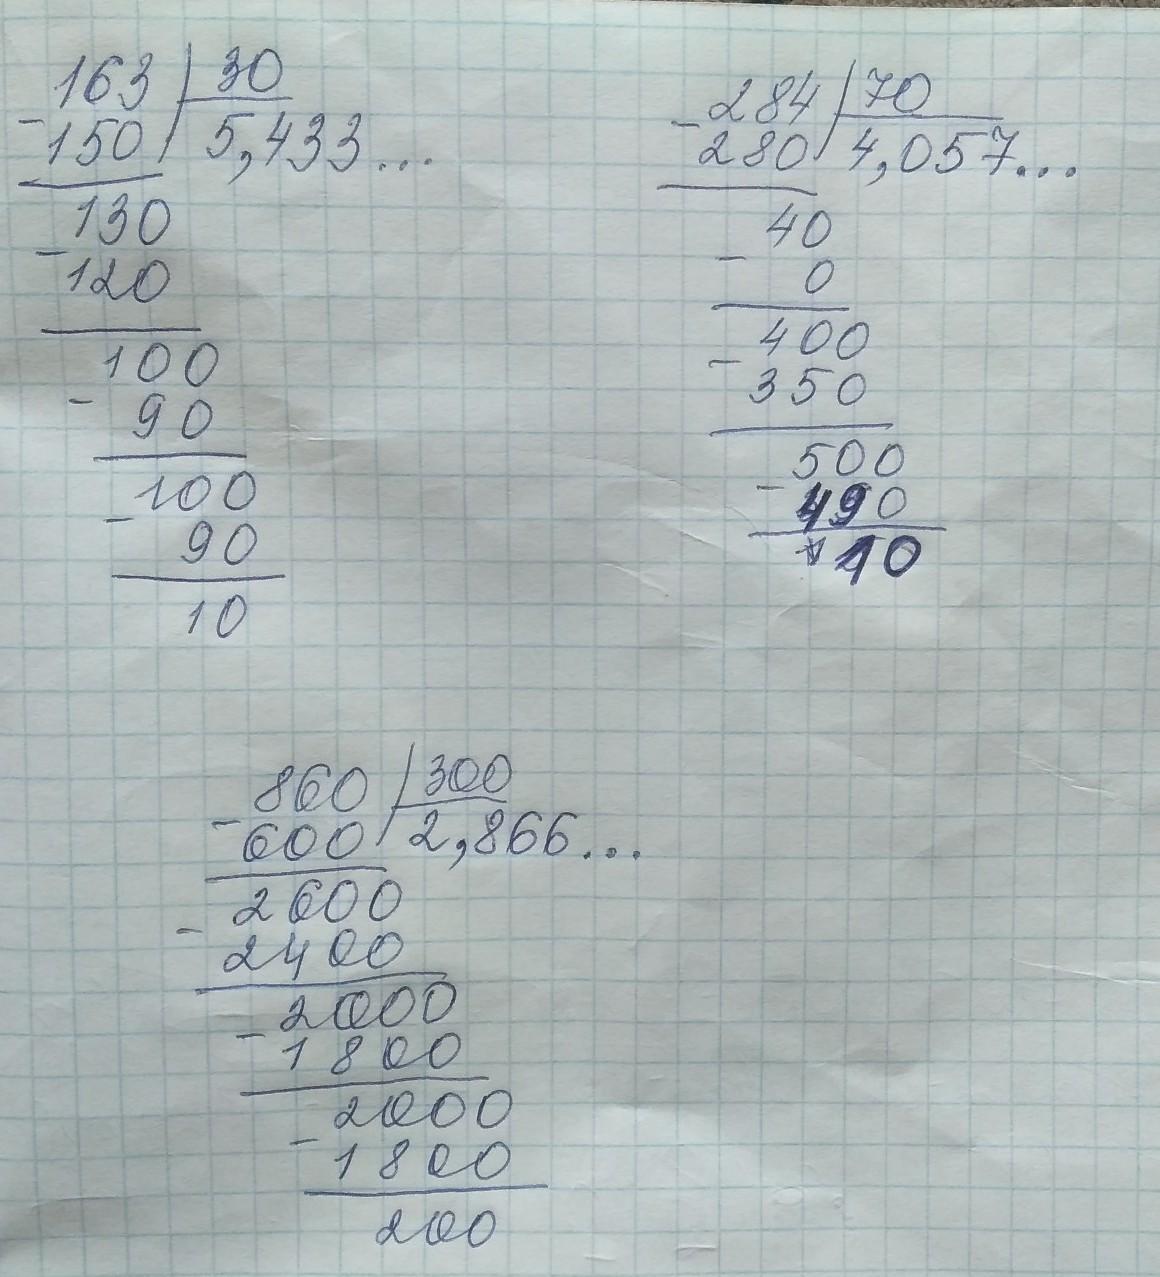 163 30
-150 5,433...
130
-120
100
-90
100
-90
10
284 70
-280 4,057...
40
-0
400
-350
500
-490
10
860 300
-600 2,866...
2600
-2400
2000
-1800
2000
-1800
200